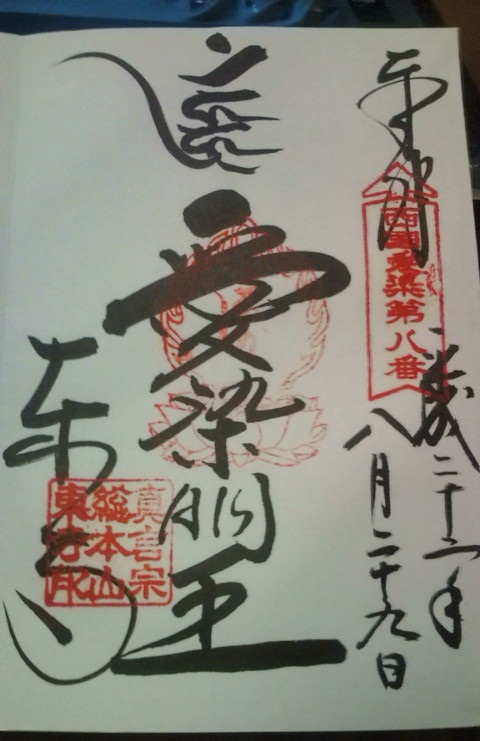 奉拝
西国愛染第八番
平成二十二年
八月二十九日
愛染明王
東寺
真言宗
総本山
東寺印